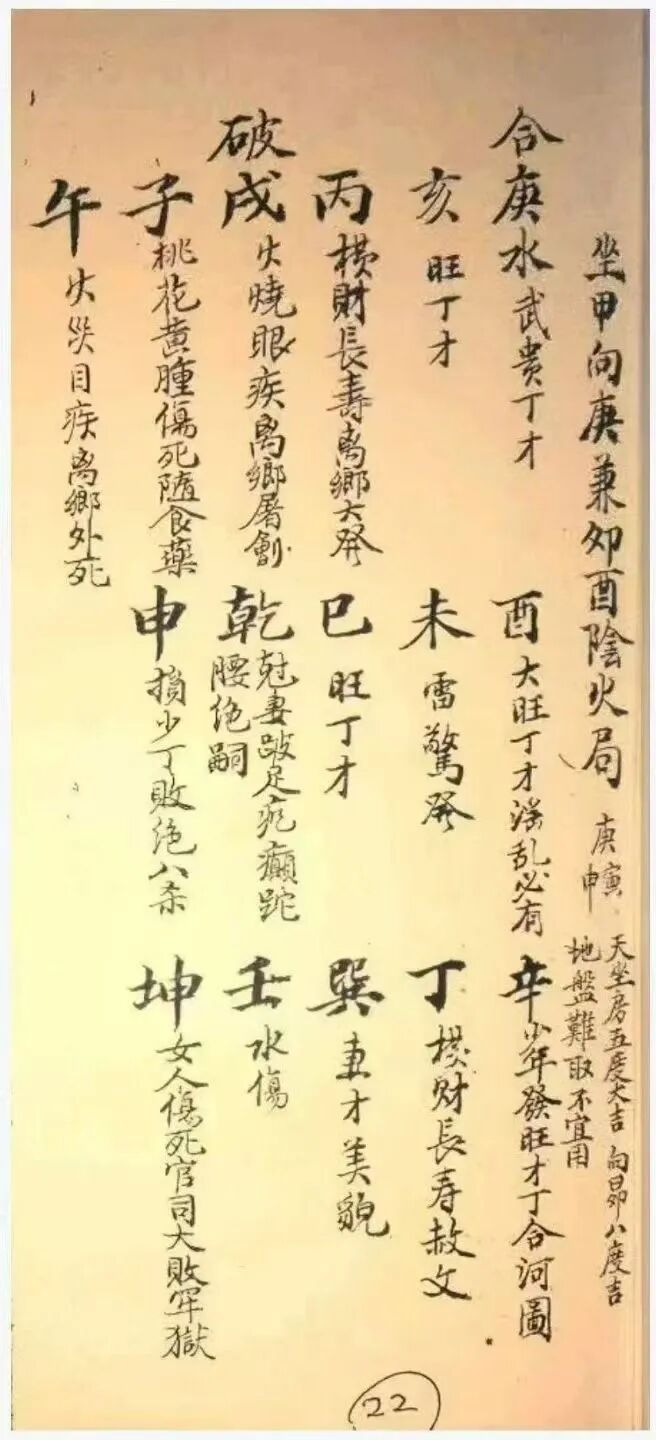 坐甲向庚兼卯酉陰火局
庚寅
庚申
天坐房五度大吉 向昴八度吉
地盤難取不宜用
合
庚水武贵丁才
酉大旺丁才淫乱必有
辛少年發旺才丁合河圖
亥旺丁才
未雷驚發
丁横財長寿赦文
丙横財長壽离鄉大發
巳旺丁才
巽妻才美貌
破
戌火燒眼疾离鄉屠劊
乾尅妻跛足疤癲跎
腰绝嗣
壬水傷
子桃花黄腫傷死隨食藥
申損少丁敗绝八杀
坤女人傷死官司大敗牢獄
午火災目疾离鄉外死
22